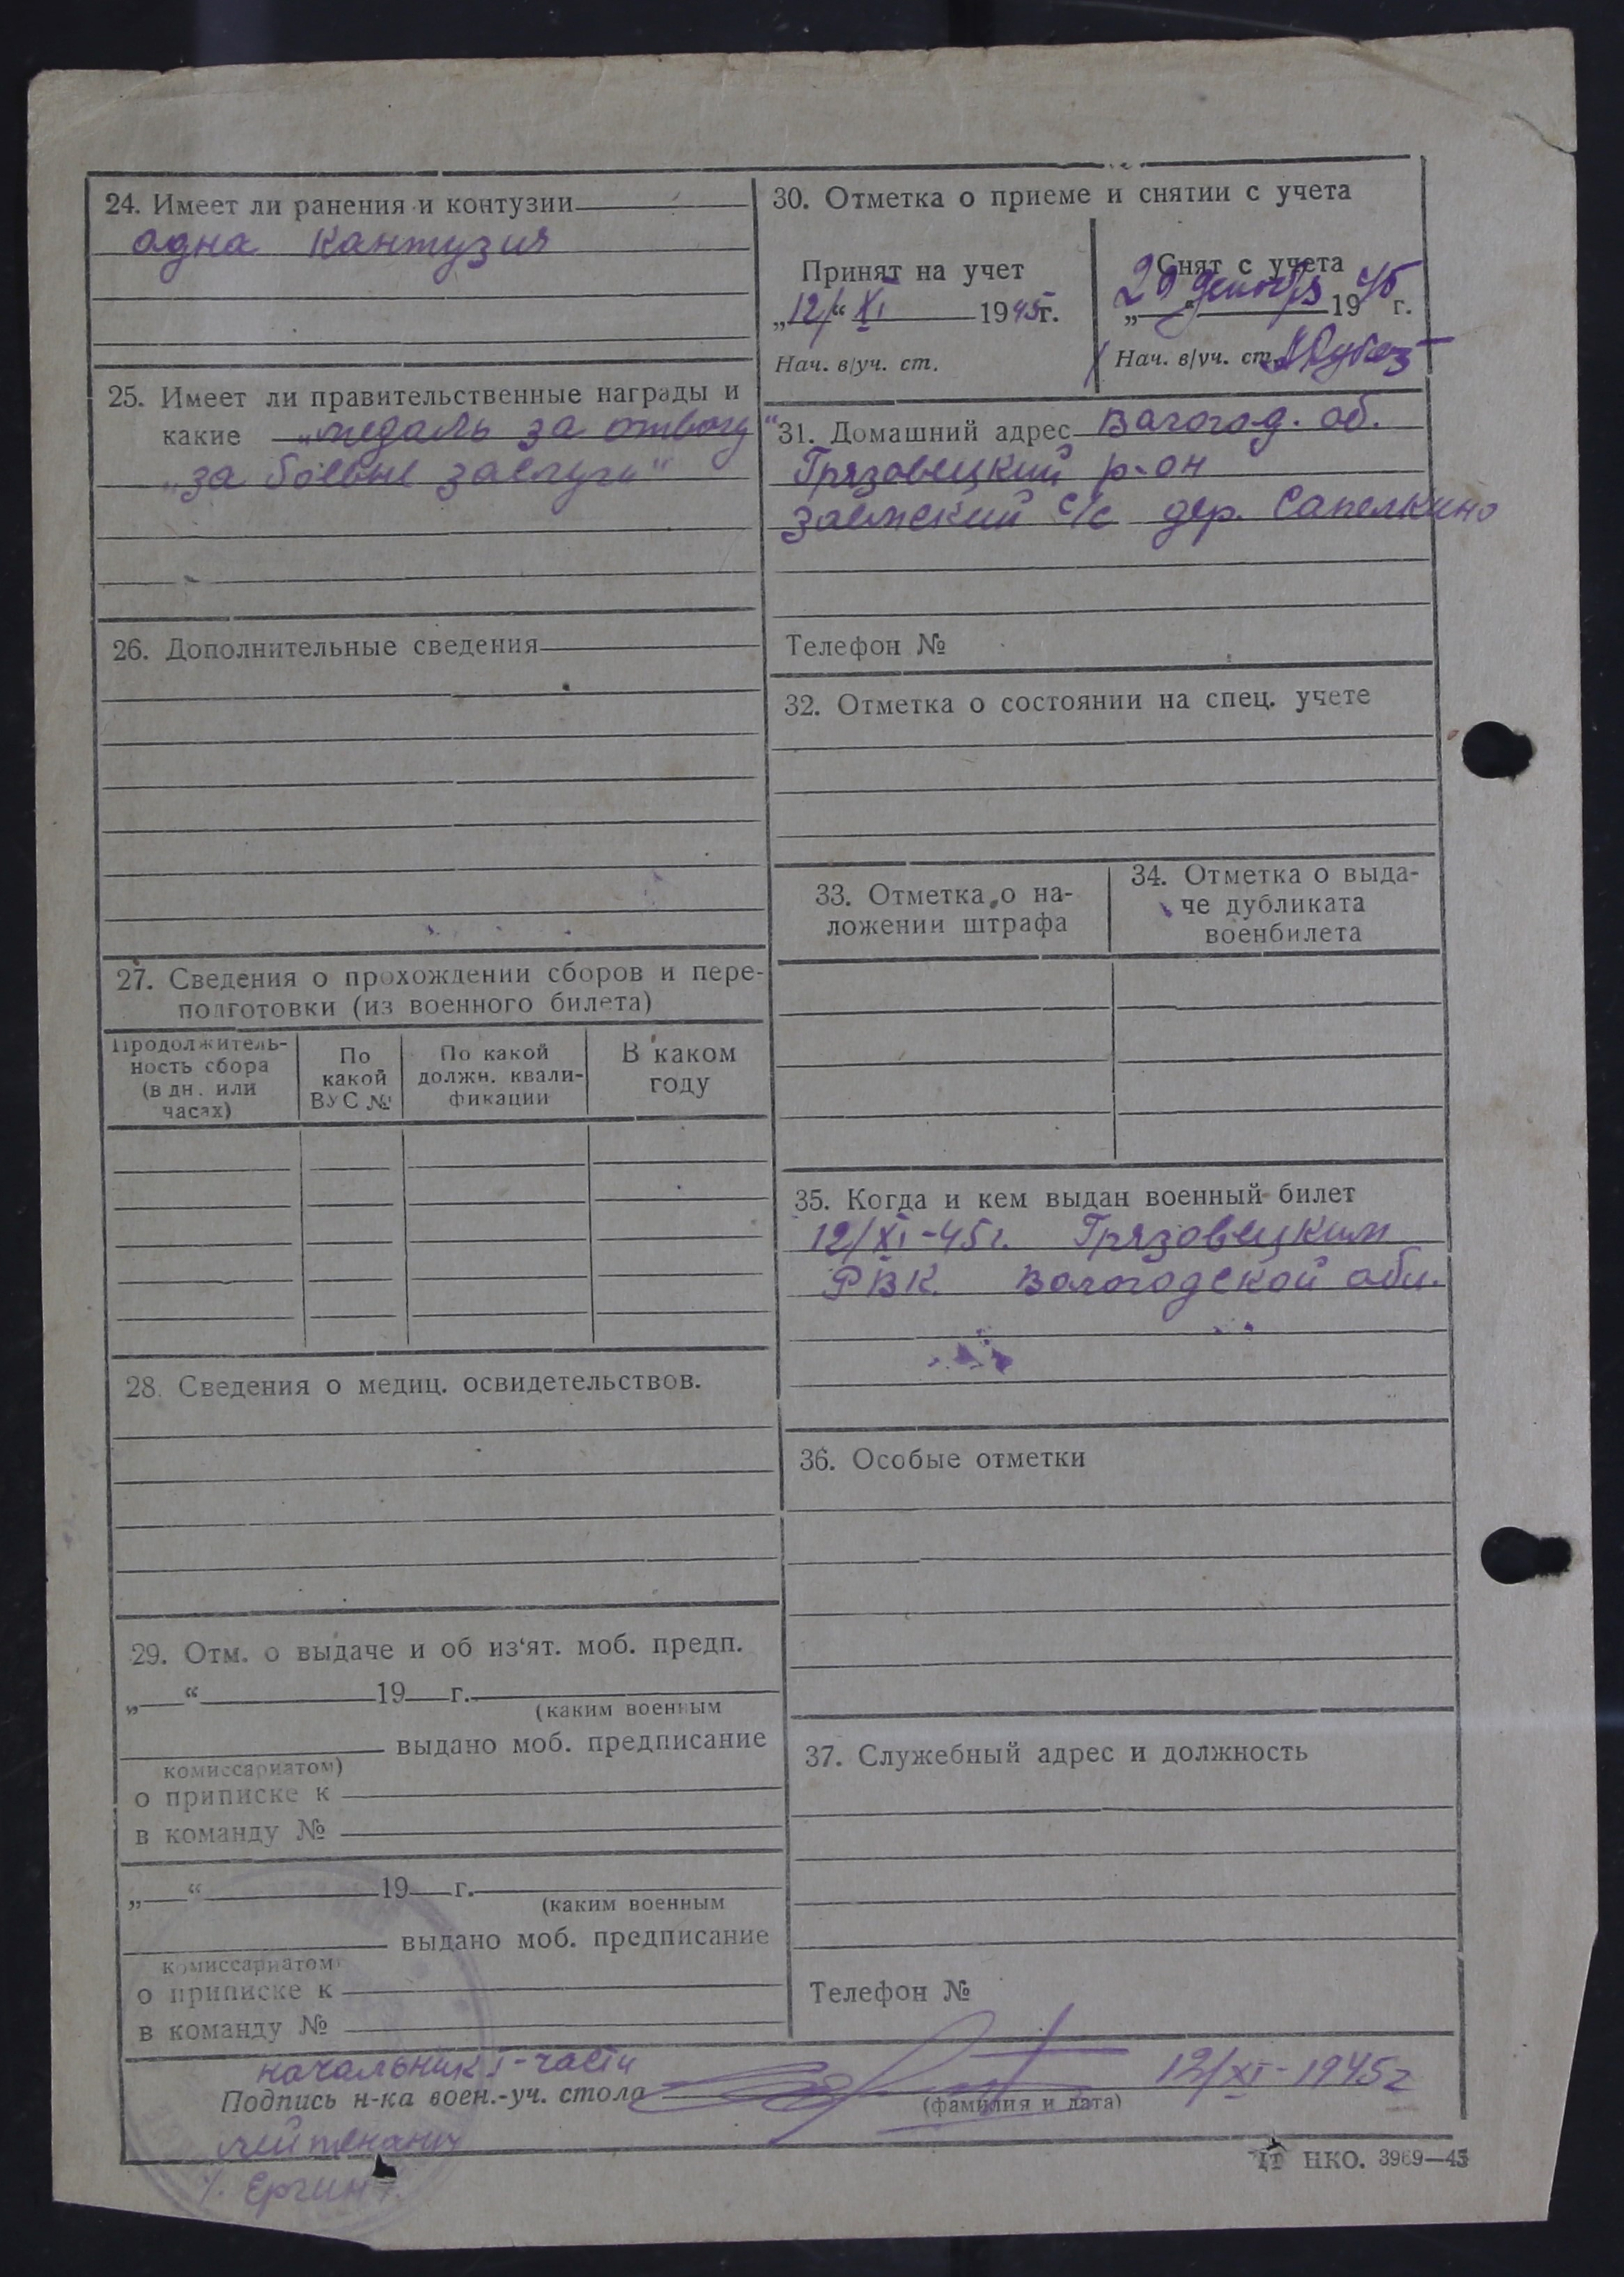 24. Имеет ли ранения и контузии
одна кантузия
25. Имеет ли правительственные награды и
какие „медаль за отвагу“
„за боевые заслуги“
26. Дополнительные сведения
27. Сведения о прохождении сборов и пере-
подготовки (из военного билета)
Продолжитель-
ность сбора
(в дн. или
часах)
По
какой
ВУС №
По какой
должн. квали-
фикации
В каком
году
28. Сведения о медиц. освидетельствов.
29. Отм. о выдаче и об из‘ят. моб. предп.
„ “ 19 г.
(каким военным
выдано моб. предписание
комиссариатом)
о приписке к
в команду №
„ “ 19 г.
(каким военным
выдано моб. предписание
комиссариатом)
о приписке к
в команду №
30. Отметка о приеме и снятии с учета
Принят на учет
„12/“ XI 1945г.
Нач. в/уч. ст.
Снят с учета
29 декабря 1945 г.
Нач. в/уч. ст.
31. Домашний адрес Вологод. об.
Грязовецкий р-он
Заемский с/с дер. Сапелкино
Телефон №
32. Отметка о состоянии на спец. учете
33. Отметка о на-
ложении штрафа
34. Отметка о выда-
че дубликата
военбилета
35. Когда и кем выдан военный билет
12/XI-45г. Грязовецким
РВК. Вологодской обл.
36. Особые отметки
37. Служебный адрес и должность
Телефон №
начальник I-части
Подпись н-ка воен.-уч. стола 12/XI-1945г
(фамилия и дата)
лейтенант
НКО. 3969—45